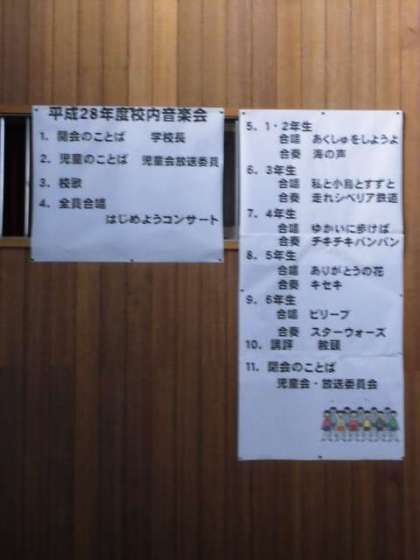 平成28年度校内音楽会
1．開会のことば　学校長
2．児童のことば　児童会放送委員
3．校歌
4．全員合唱
はじめようコンサート
5．1・2年生
合唱　あくしゅをしようよ
合奏　海の声
6．3年生
合唱　私と小鳥とすずと
合奏　走れシベリア鉄道
7．4年生
合唱　ゆかいに歩けば
合奏　チキチキバンバン
8．5年生
合唱　ありがとうの花
合奏　キセキ
9．6年生
合唱　ビリーブ
合奏　スターウォーズ
10．講評　教頭
11．閉会のことば
児童会・放送委員会